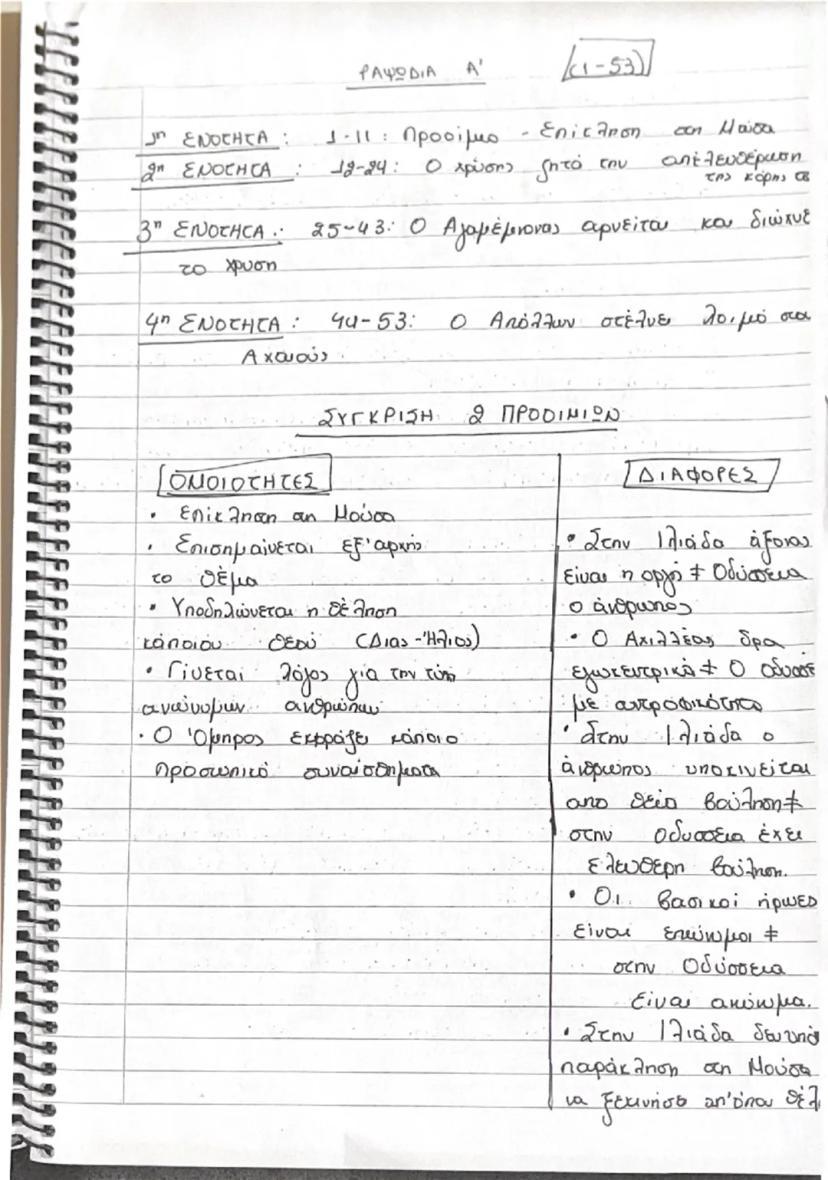 ΡΑΨΩΔΙΑ Α' (1-53)
1η ΕΝΟΤΗΤΑ : 1-11 : Προοίμιο - Επίκληση στη Μούσα
2η ΕΝΟΤΗΤΑ : 12-24: Ο Χρύσης ζητά την απελευθέρωση
της κόρης
3η ΕΝΟΤΗΤΑ : 25-43: Ο Αγαμέμνονας αρνείται και διώχνε
το Χρυση
4η ΕΝΟΤΗΤΑ : 44-53: Ο Απόλλων στέλνε λοιμό στο
Αχαιούς
ΣΥΓΚΡΙΣΗ 2 ΠΡΟΟΙΜΙΩΝ
ΟΜΟΙΟΤΗΤΕΣ
• Επίκληση στη Μούσα
• Επισημαίνεται εξ'αρχής
το θέμα
• Υποδηλώνεται η θέληση
κάποιου θεού (Δίας-Ήλιος)
• Γίνεται λόγος για την τύχη
ανώνυμων ανθρώπων
• Ο Όμηρος εκφράζε κάποιο
προσωπικό συναίσθημα
ΔΙΑΦΟΡΕΣ
• Στην Ιλιάδα άξονας
είναι η οργή ≠ Οδύσσεια
ο άνθρωπος
• Ο Αχιλλέας δρα
εγωκεντρικά ≠ Ο Οδυσσέ
με αντροφικότητα
• Στην Ιλιάδα ο
άνθρωπος υποκινείται
απο θεία βούληση ≠
στην Οδυσσεια έχει
ελευθερη βούληση.
• Οι βασικοί ήρωες
είναι επώνυμοι ≠
στην Οδύσσεια
είναι ανώνυμα.
• Στην Ιλιάδα
παράκληση στη Μούσα
να ξεκινήσε απ'όπου θέλ